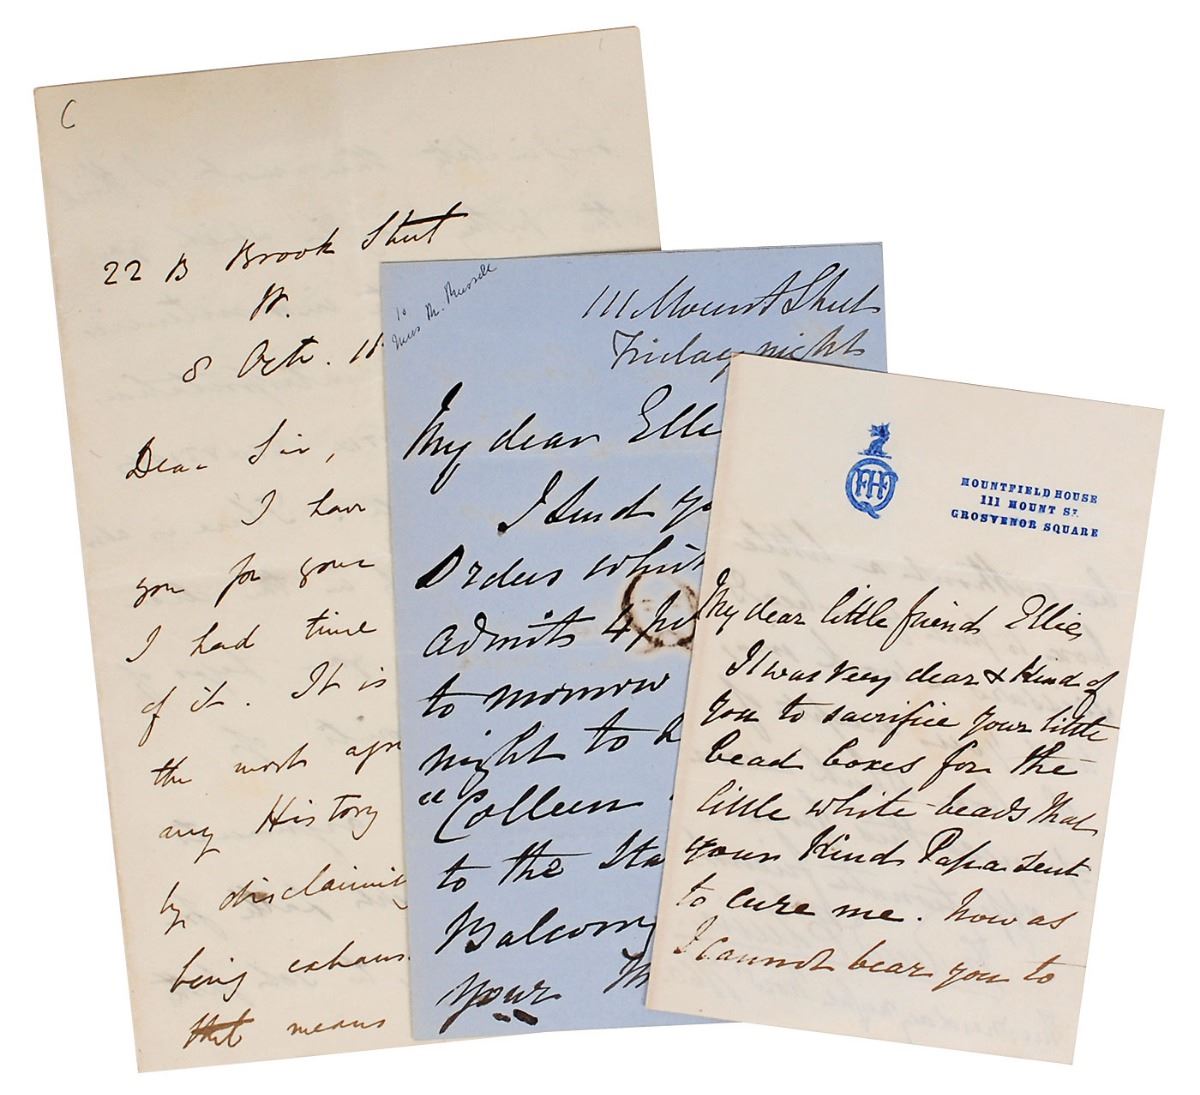 C
22 B Brook Street
W.
8 Octr. 18
Dear Sir,
I have
you for your
I had time
of it. It is
the most
my History
by disclaiming
being exhaus
that means
To
Miss M. Russell
111 Mount Street
Friday night
My dear Ellie
I send yo
Orders which
admits 4
to morrow
night to
"Colleen
to the Sta
Balcony
your
FHF
MOUNTFIELD HOUSE
111 MOUNT ST.
GROSVENOR SQUARE
My dear little friend Ellie,
It was very dear & kind of
you to sacrifice your little
bead boxes for the
little white beads that
your kind Papa sent
to cure me. Now as
I cannot bear you to